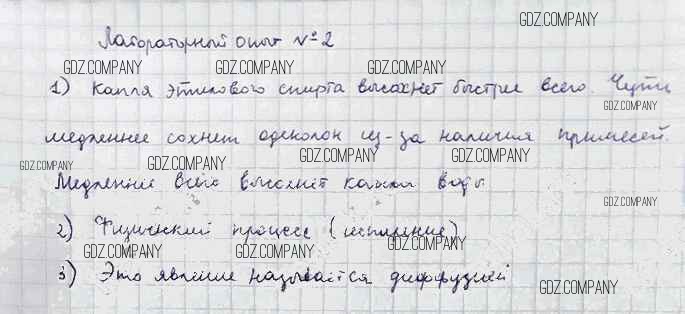 GDZ.COMPANY
Лабораторный опыт №2
GDZ.COMPANY GDZ.COMPANY GDZ.COMPANY
1) Капля этилового спирта высохнет быстрее всего. Чуть
GDZ.COMPANY
медленнее сохнет одеколон из-за наличия примесей.
GDZ.COMPANY GDZ.COMPANY GDZ.COMPANY GDZ.COMPANY
Медленнее всего высохнет капля воды.
GDZ.COMPANY
2) Физический процесс (испарение)
GDZ.COMPANY GDZ.COMPANY GDZ.COMPANY
3) Это явление называется диффузией
GDZ.COMPANY